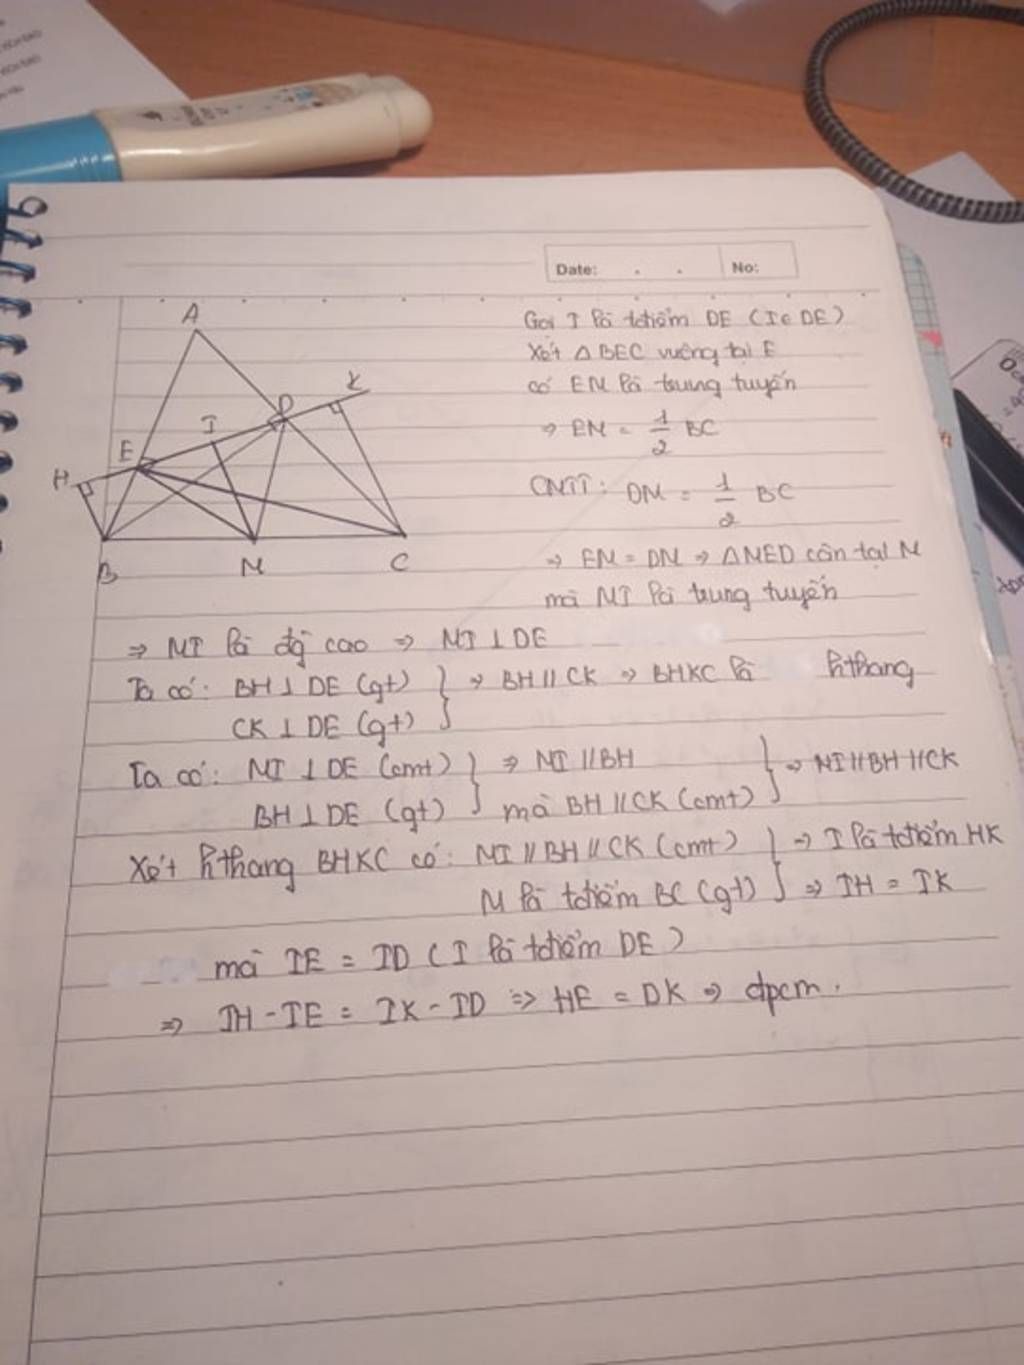 Date: . . No:
A
K
D
I
E
H
B M C
Gọi I là tđiểm DE (I ∈ DE)
Xét △BEC vuông tại E
có EM là trung tuyến
⇒ EM = 1/2 BC
CMTT: DM = 1/2 BC
⇒ EM = DM ⇒ △MED cân tại M
mà MI là trung tuyến
⇒ MI là đg cao ⇒ MI ⊥ DE
Ta có: BH ⊥ DE (gt) } ⇒ BH // CK ⇒ BHKC là hthang
CK ⊥ DE (gt)
Ta có: MI ⊥ DE (cmt) } ⇒ MI // BH } ⇒ MI // BH // CK
BH ⊥ DE (gt) mà BH // CK (cmt)
Xét hthang BHKC có: MI // BH // CK (cmt) } ⇒ I là tđiểm HK
M là tđiểm BC (gt) ⇒ IH = IK
mà IE = ID (I là tđiểm DE)
⇒ IH - IE = IK - ID ⇒ HE = DK ⇒ đpcm.